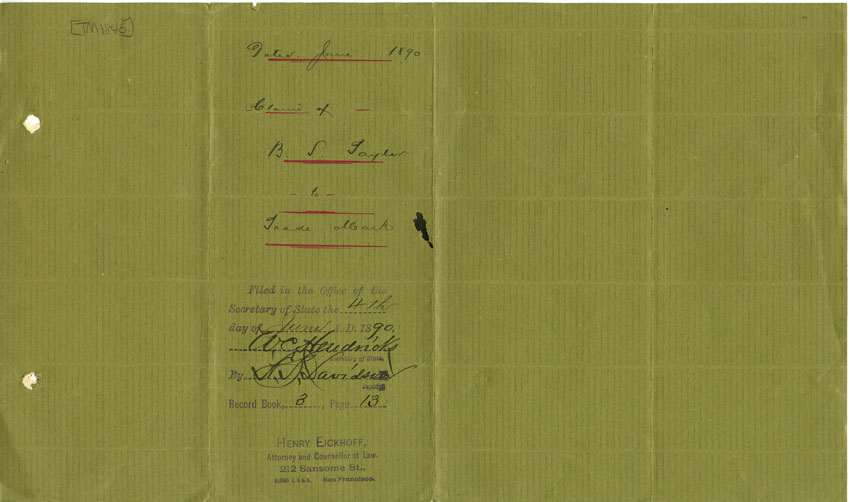 [TM 1845]
Dated June 1890
Claim of
B. S. Taylor
- to -
Trade Mark
Filed in the Office of the
Secretary of State the 4th
day of June A. D. 1890.
W C Hendricks
Secretary of State.
By Davidson
Deputy
Record Book, 3, Page 13
HENRY EICKHOFF,
Attorney and Counsellor at Law.
212 Sansome St.,
San Francisco.